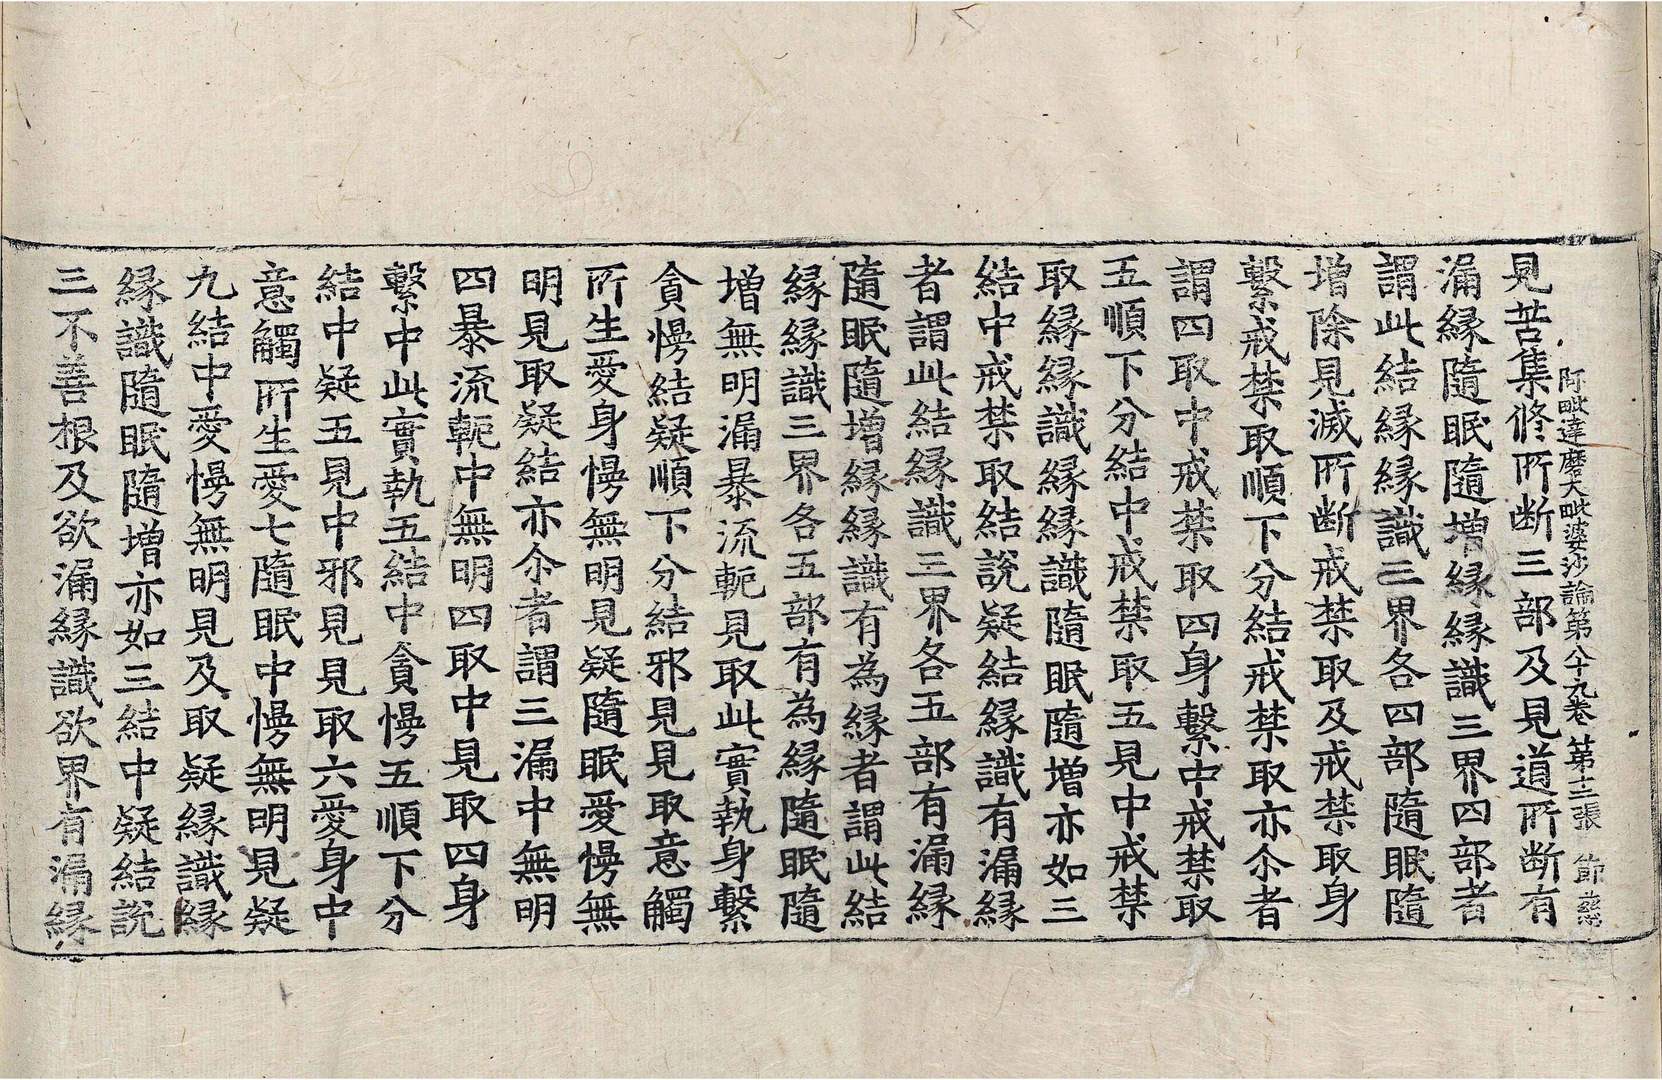 阿毗達磨大毗婆沙論第八十九卷 第十二張 節 慈
見苦集修所断三部及見道所断有
漏緣隨眠隨增緣緣識三界四部者
謂此結緣緣識三界各四部隨眠隨
增除見滅所断戒禁取及戒禁取身
繫戒禁取順下分結戒禁取亦尒者
謂四取中戒禁取四身繫中戒禁取
五順下分結中戒禁取五見中戒禁
取緣緣識緣緣識隨眠隨增亦如三
結中戒禁取結說疑結緣識有漏緣
者謂此結緣識三界各五部有漏緣
隨眠隨增緣緣識有為緣者謂此結
緣緣識三界各五部有為緣隨眠隨
增無明漏暴流軛見取此實執身繫
貪慢結疑順下分結邪見見取意觸
所生愛身慢無明見疑隨眠愛慢無
明見取疑結亦尒者謂三漏中無明
四暴流軛中無明四取中見取四身
繫中此實執五結中貪慢五順下分
結中疑五見中邪見見取六愛身中
意觸所生愛七隨眠中慢無明見疑
九結中愛慢無明見及取疑緣識緣
緣識隨眠隨增亦如三結中疑結說
三不善根及欲漏緣識欲界有漏緣